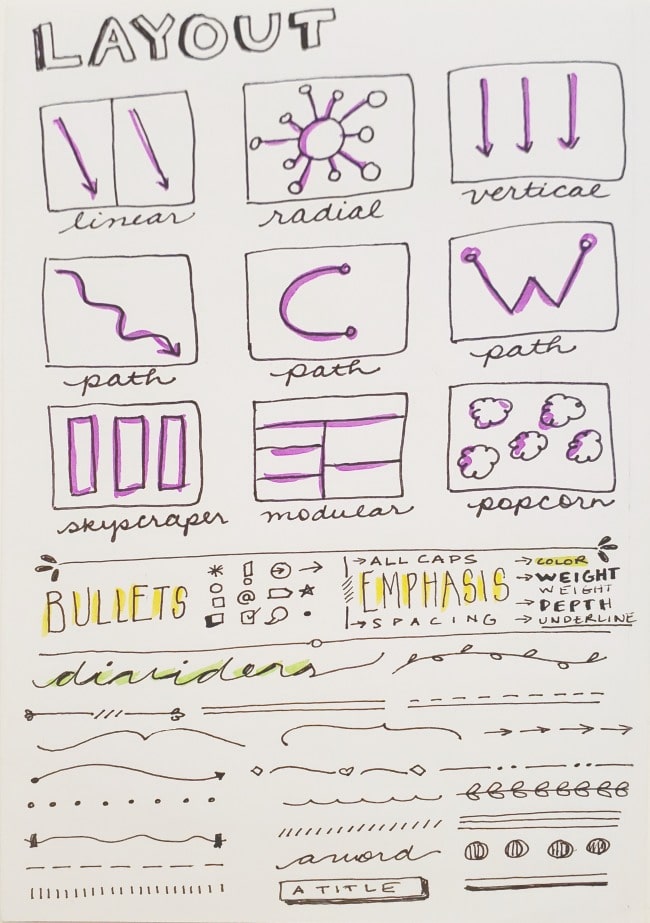 LAYOUT
linear radial vertical
path path path
skyscraper modular popcorn
BULLETS
@
EMPHASIS
ALL CAPS
SPACING
COLOR
WEIGHT
WEIGHT
DEPTH
UNDERLINE
dividers
a word
A TITLE